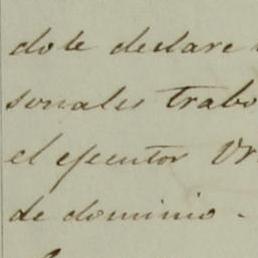 dole declare
sonales trabo
el ejecutor Or
de dominio.